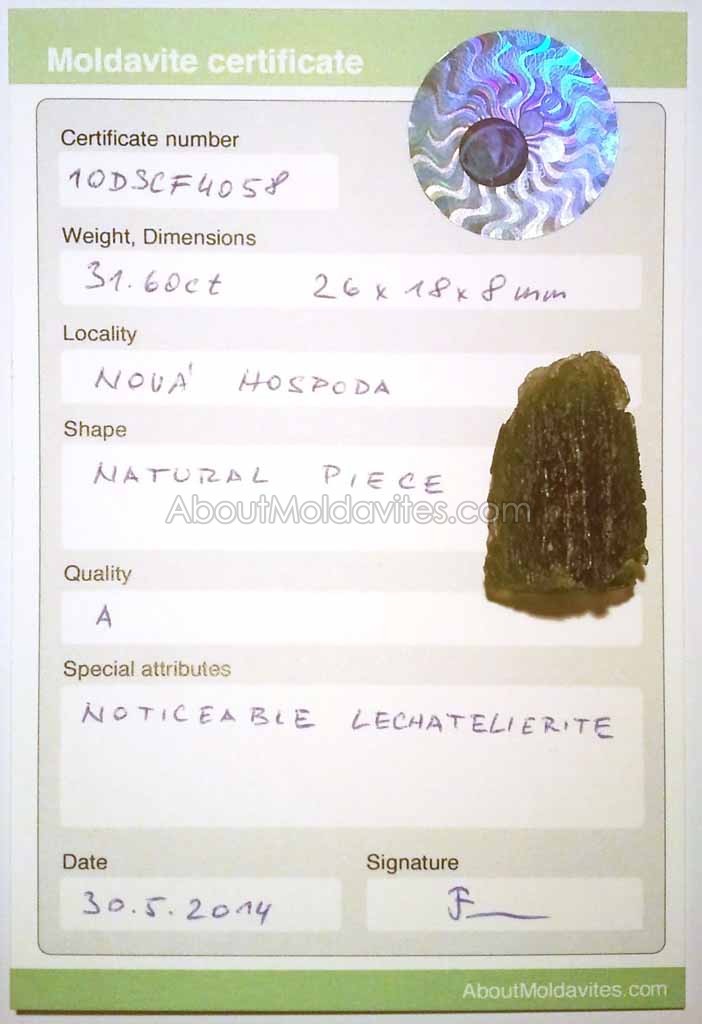 Moldavite certificate
Certificate number
10DSCF4058
Weight, Dimensions
31.60ct 26 x 18 x 8 mm
Locality
NOVÁ HOSPODA
Shape
NATURAL PIECE
AboutMoldavites.com
Quality
A
Special attributes
NOTICEABLE LECHATELIERITE
Date Signature
30.5.2014
AboutMoldavites.com